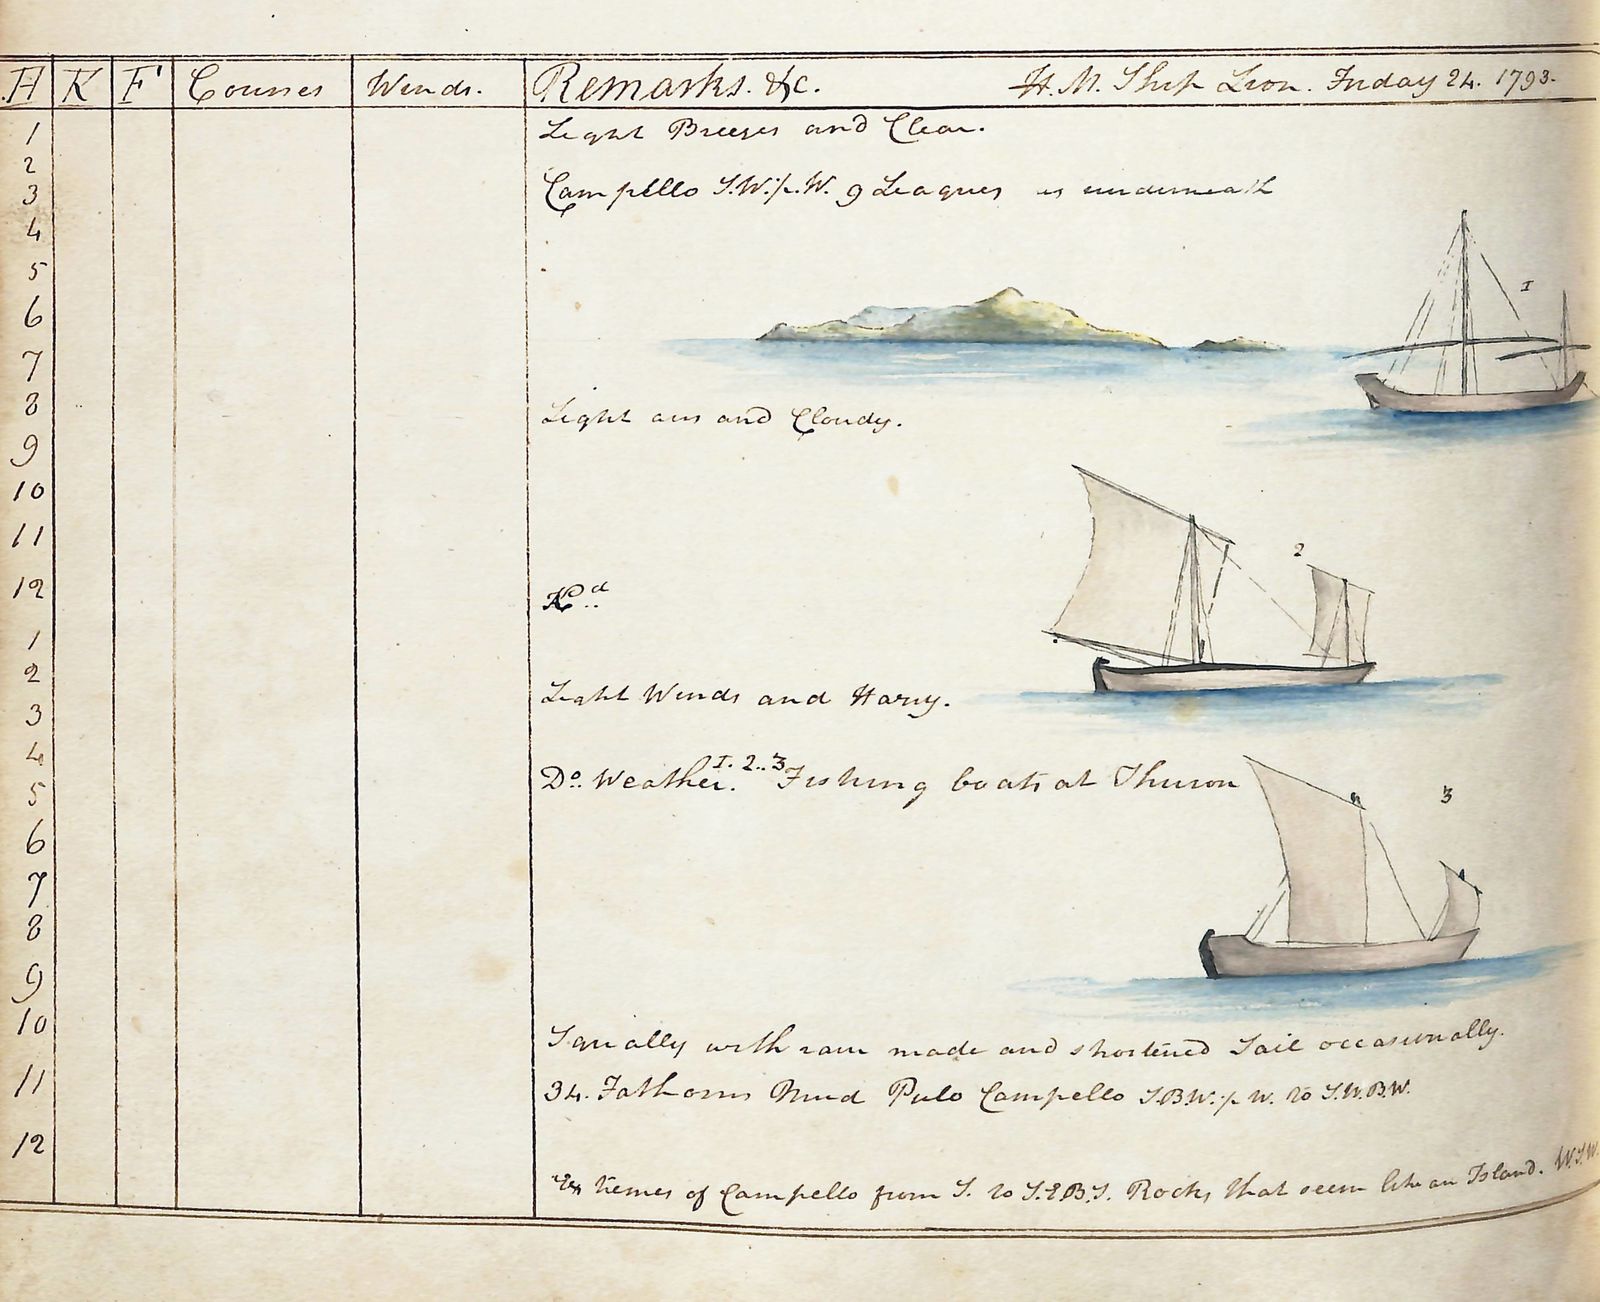 H K F Courses Winds. Remarks. &c. H. M. Ship Lion. Friday 24. 1793.
1 Light Breezes and Clear.
2
3 Campello S.W.½.W. 9 Leagues is underneath
4
5
6 I
7
8 Light airs and Cloudy.
9
10
11
12 2
1
2
3 Light Winds and Hazy.
4
5 Do. Weather. I. 2.. 3 Fishing boats at Thuron 3
6
7
8
9
10 Squally with rain made and shortened Sail occasionally.
11 34. Fathoms Mud Pulo Campello S.B.W.½ W. to S.W.B.W.
12
Extremes of Campello from S. to S.E.B.S. Rocks that seem like an Island. W.S.W.